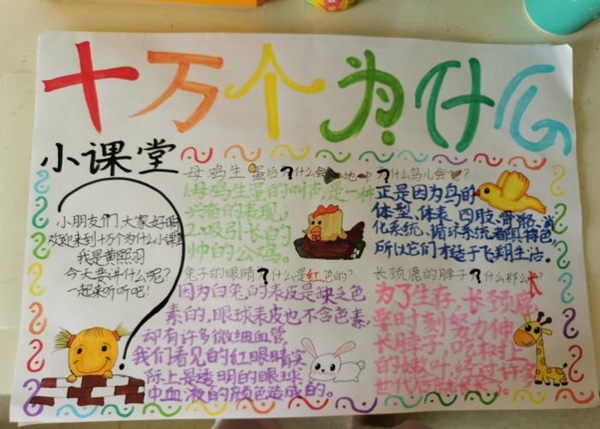 十万个为什么
小课堂
小朋友们,大家好啊
欢迎来到十万个为什么小课堂
我是黄熙羽
今天要讲什么呢?
一起来听听吧!
母鸡生蛋后?什么会
1.母鸡生蛋的叫声是一种
兴奋的表现,
2.吸引长的
帅的公鸡。
什么鸟儿会飞?
正是因为鸟的
体型、体表、四肢、骨骼、消
化系统、循环系统都具特色
所以它们才适于飞翔生活。
兔子的眼睛?什么是红色的?
因为白兔的表皮是缺乏色
素的,眼球表皮也不含色素,
却有许多微细血管,
我们看见的红眼睛实
际上是透明的眼球
中血液的颜色造成的。
长颈鹿的脖子?什么那么长?
为了生存,长颈鹿
要时刻努力伸
长脖子,
的嫩叶,经过许多
世代后